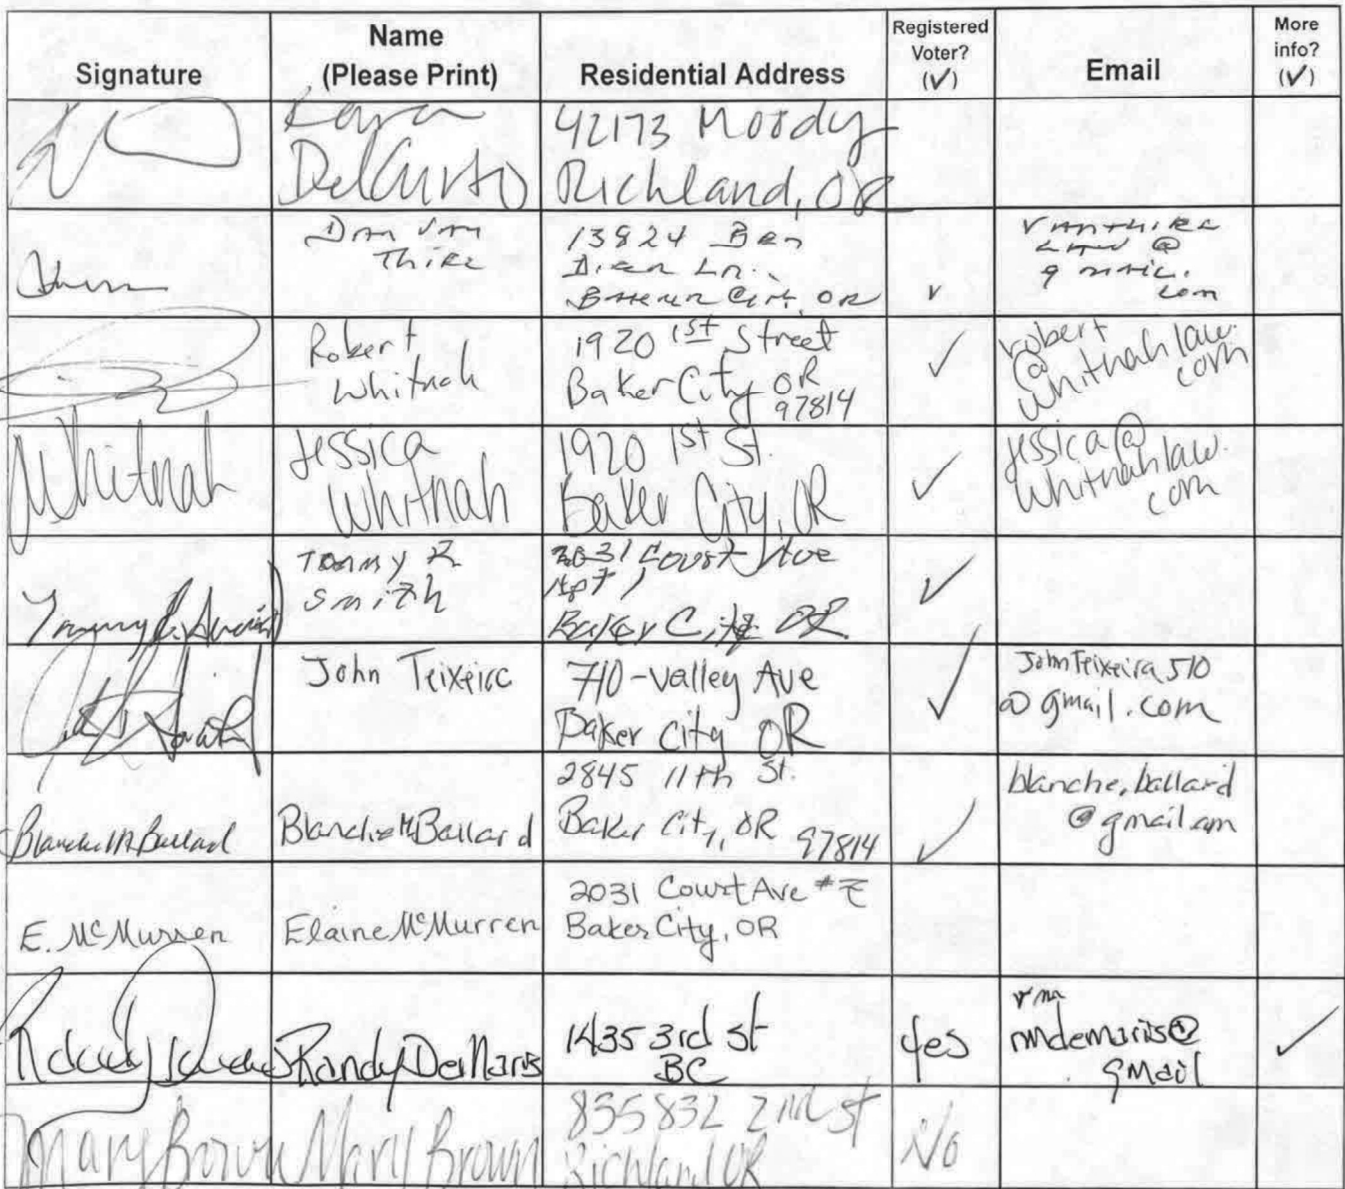 Signature
Name
(Please Print)
Residential Address
Registered
Voter?
(✓)
Email
More
info?
(✓)
Kara
DelCurto
42173 Moody
Richland, OR
Thire
13824 Ben
Ln.
OR
✓
@
com
Robert
Whitnah
1920 1st Street
Baker City OR
97814
✓
robert
@
whitnahlaw.
com
JWhitnah
Jessica
Whitnah
1920 1st St.
Baker City, OR
✓
jessica@
Whitnahlaw.
com
Tommy R
Smith
2031 Court Ave
Apt 1
Baker City OR
✓
John Teixeira
710-Valley Ave
Baker City OR
✓
JohnTeixeira510
@gmail.com
Blanche M Ballard
Blanche M Ballard
2845 11th St.
Baker City, OR 97814
✓
blanche.ballard
@gmail.com
E. McMurren
Elaine McMurren
2031 Court Ave #E
Baker City, OR
Randy DeMaris
1435 3rd St
BC
yes
rm
rmdemaris@
gmail
✓
Mary Brown
Mary Brown
835832 2nd St
Richland OR
No